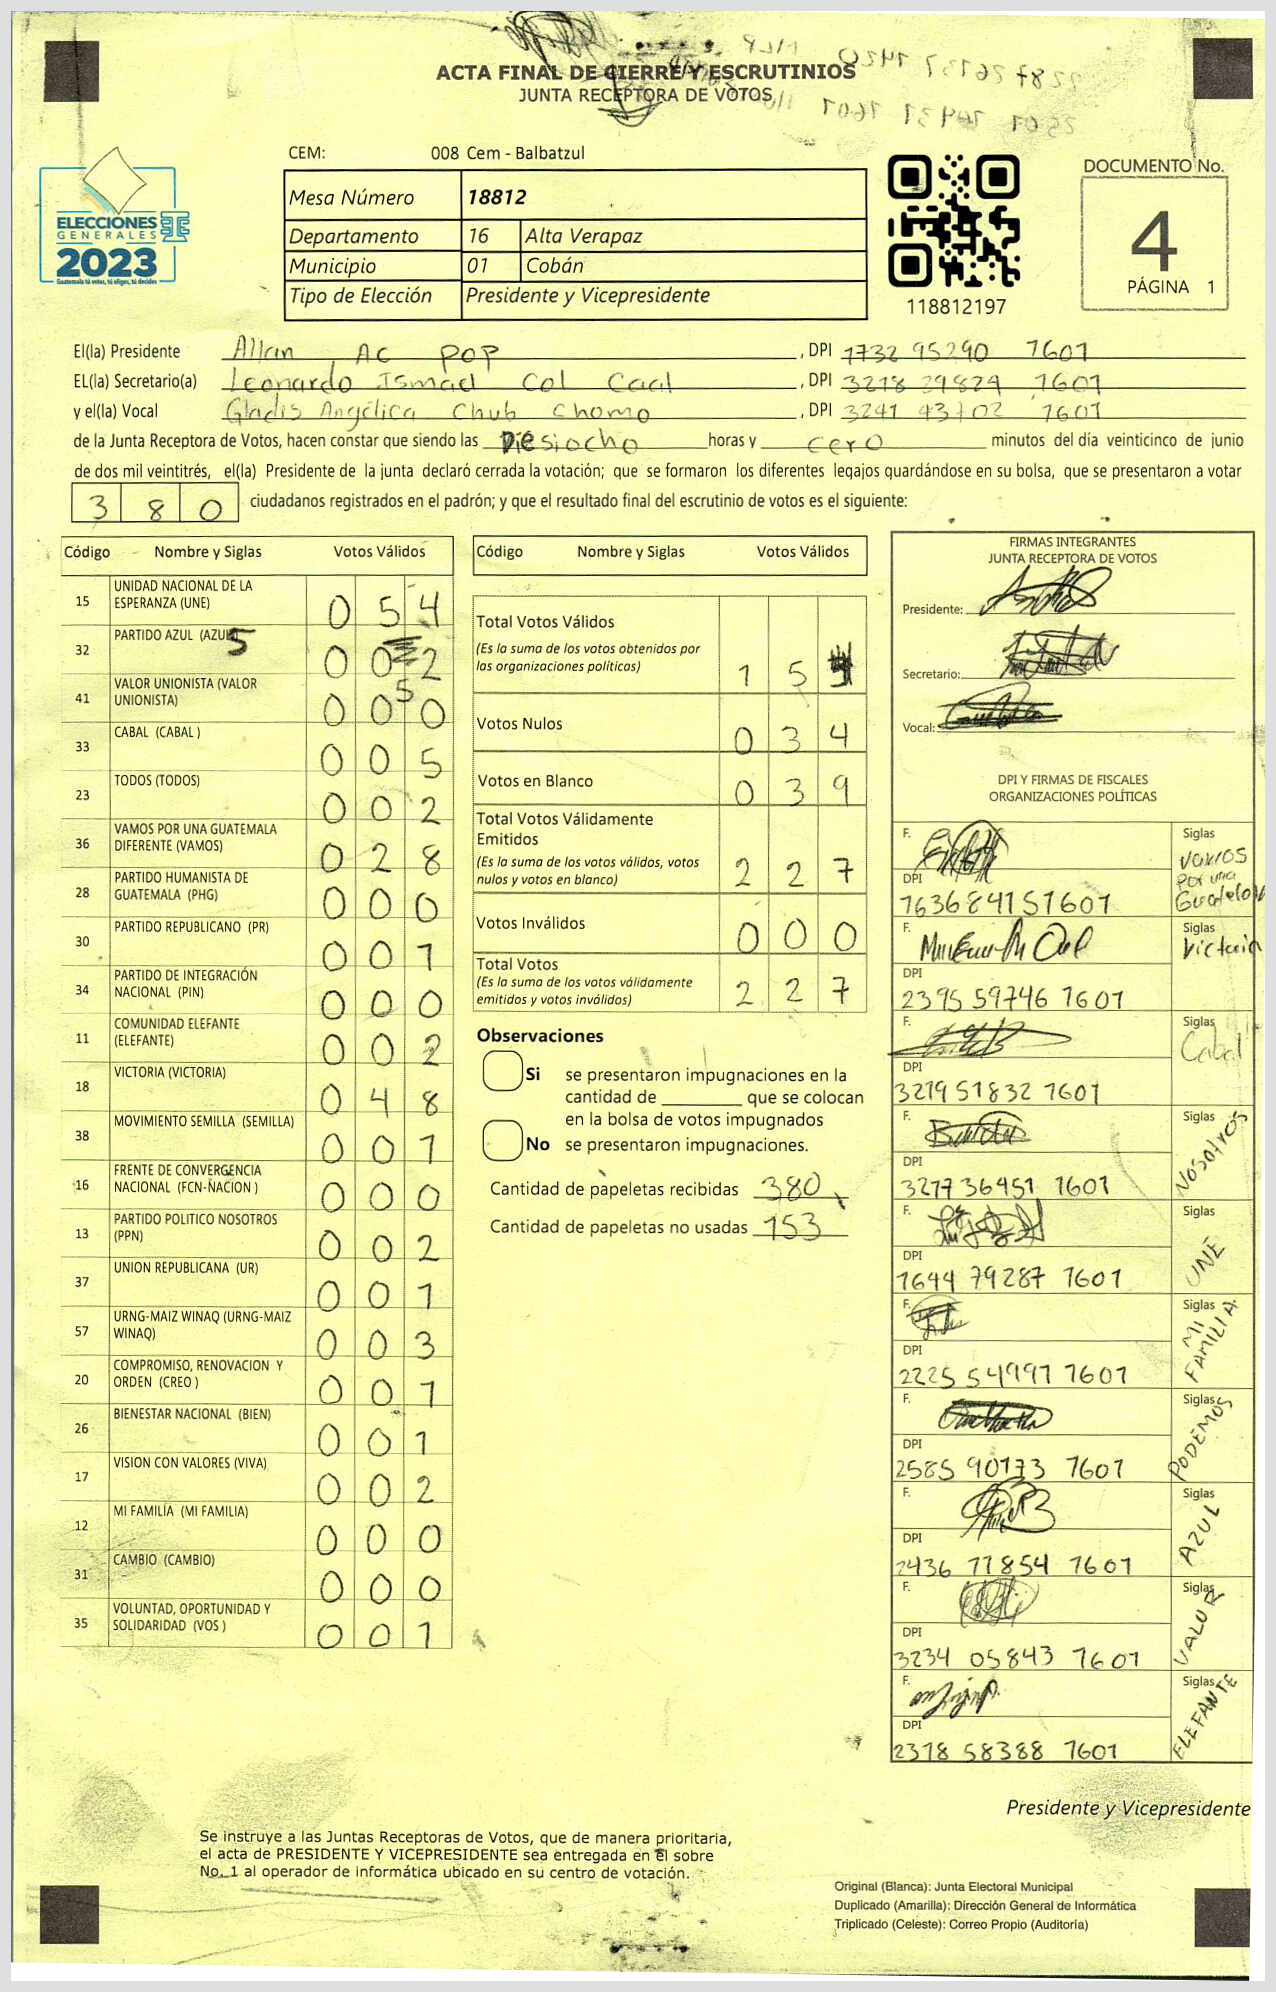 ACTA FINAL DE CIERRE Y ESCRUTINIOS
JUNTA RECEPTORA DE VOTOS
CEM: 008 Cem - Balbatzul
Mesa Número 18812
Departamento 16 Alta Verapaz
Municipio 01 Cobán
Tipo de Elección Presidente y Vicepresidente
ELECCIONES
GENERALES
2023
Guatemala tú votas, tú eliges, tú decides
118812197
DOCUMENTO No.
4
PÁGINA 1
El(la) Presidente Allan Ac POP , DPI 1732 95290 1601
EL(la) Secretario(a) Leonardo Ismael Col Caal , DPI 3218 29829 1601
y el(la) Vocal Gladis Angélica Chub Chomo , DPI 3241 43702 1601
de la Junta Receptora de Votos, hacen constar que siendo las Diesiocho horas y cero minutos del día veinticinco de junio
de dos mil veintitrés, el(la) Presidente de la junta declaró cerrada la votación; que se formaron los diferentes legajos quardándose en su bolsa, que se presentaron a votar
380 ciudadanos registrados en el padrón; y que el resultado final del escrutinio de votos es el siguiente:
Código Nombre y Siglas Votos Válidos
15 UNIDAD NACIONAL DE LA
ESPERANZA (UNE) 0 5 4
32 PARTIDO AZUL (AZUL) 5 0 0 2
41 VALOR UNIONISTA (VALOR
UNIONISTA) 5 0 0 0
33 CABAL (CABAL ) 0 0 5
23 TODOS (TODOS) 0 0 2
36 VAMOS POR UNA GUATEMALA
DIFERENTE (VAMOS) 0 2 8
28 PARTIDO HUMANISTA DE
GUATEMALA (PHG) 0 0 0
30 PARTIDO REPUBLICANO (PR) 0 0 1
34 PARTIDO DE INTEGRACIÓN
NACIONAL (PIN) 0 0 0
11 COMUNIDAD ELEFANTE
(ELEFANTE) 0 0 2
18 VICTORIA (VICTORIA) 0 4 8
38 MOVIMIENTO SEMILLA (SEMILLA) 0 0 1
16 FRENTE DE CONVERGENCIA
NACIONAL (FCN-NACION ) 0 0 0
13 PARTIDO POLITICO NOSOTROS
(PPN) 0 0 2
37 UNION REPUBLICANA (UR) 0 0 1
57 URNG-MAIZ WINAQ (URNG-MAIZ
WINAQ) 0 0 3
20 COMPROMISO, RENOVACION Y
ORDEN (CREO ) 0 0 1
26 BIENESTAR NACIONAL (BIEN) 0 0 1
17 VISION CON VALORES (VIVA) 0 0 2
12 MI FAMILIA (MI FAMILIA) 0 0 0
31 CAMBIO (CAMBIO) 0 0 0
35 VOLUNTAD, OPORTUNIDAD Y
SOLIDARIDAD (VOS ) 0 0 1
Código Nombre y Siglas Votos Válidos
Total Votos Válidos
(Es la suma de los votos obtenidos por
las organizaciones políticas) 1 5
Votos Nulos 0 3 4
Votos en Blanco 0 3 9
Total Votos Válidamente
Emitidos
(Es la suma de los votos válidos, votos
nulos y votos en blanco) 2 2 7
Votos Inválidos 0 0 0
Total Votos
(Es la suma de los votos válidamente
emitidos y votos inválidos) 2 2 7
Observaciones
Si se presentaron impugnaciones en la
cantidad de ________ que se colocan
en la bolsa de votos impugnados
No se presentaron impugnaciones.
Cantidad de papeletas recibidas 380
Cantidad de papeletas no usadas 153
FIRMAS INTEGRANTES
JUNTA RECEPTORA DE VOTOS
Presidente:
Secretario:
Vocal:
DPI Y FIRMAS DE FISCALES
ORGANIZACIONES POLÍTICAS
F. Siglas Vamos
por una
Guatemala
DPI
1636 84151 1601
F. Siglas Victoria
DPI
2395 59746 1601
F. Siglas Cabal
DPI
3219 51832 1601
F. Siglas NOSOTROS
DPI
3277 36451 1601
F. Siglas UNE
DPI
1644 79287 1601
F. Siglas MI
FAMILIA
DPI
2225 54997 1601
F. Siglas PODEMOS
DPI
2585 90173 1601
F. Siglas AZUL
DPI
2436 71854 1601
F. Siglas VALOR
DPI
3234 05843 1601
F. Siglas ELEFANTE
DPI
2378 58388 1601
Presidente y Vicepresidente
Se instruye a las Juntas Receptoras de Votos, que de manera prioritaria,
el acta de PRESIDENTE Y VICEPRESIDENTE sea entregada en el sobre
No. 1 al operador de informática ubicado en su centro de votación.
Original (Blanca): Junta Electoral Municipal
Duplicado (Amarilla): Dirección General de Informática
Triplicado (Celeste): Correo Propio (Auditoría)